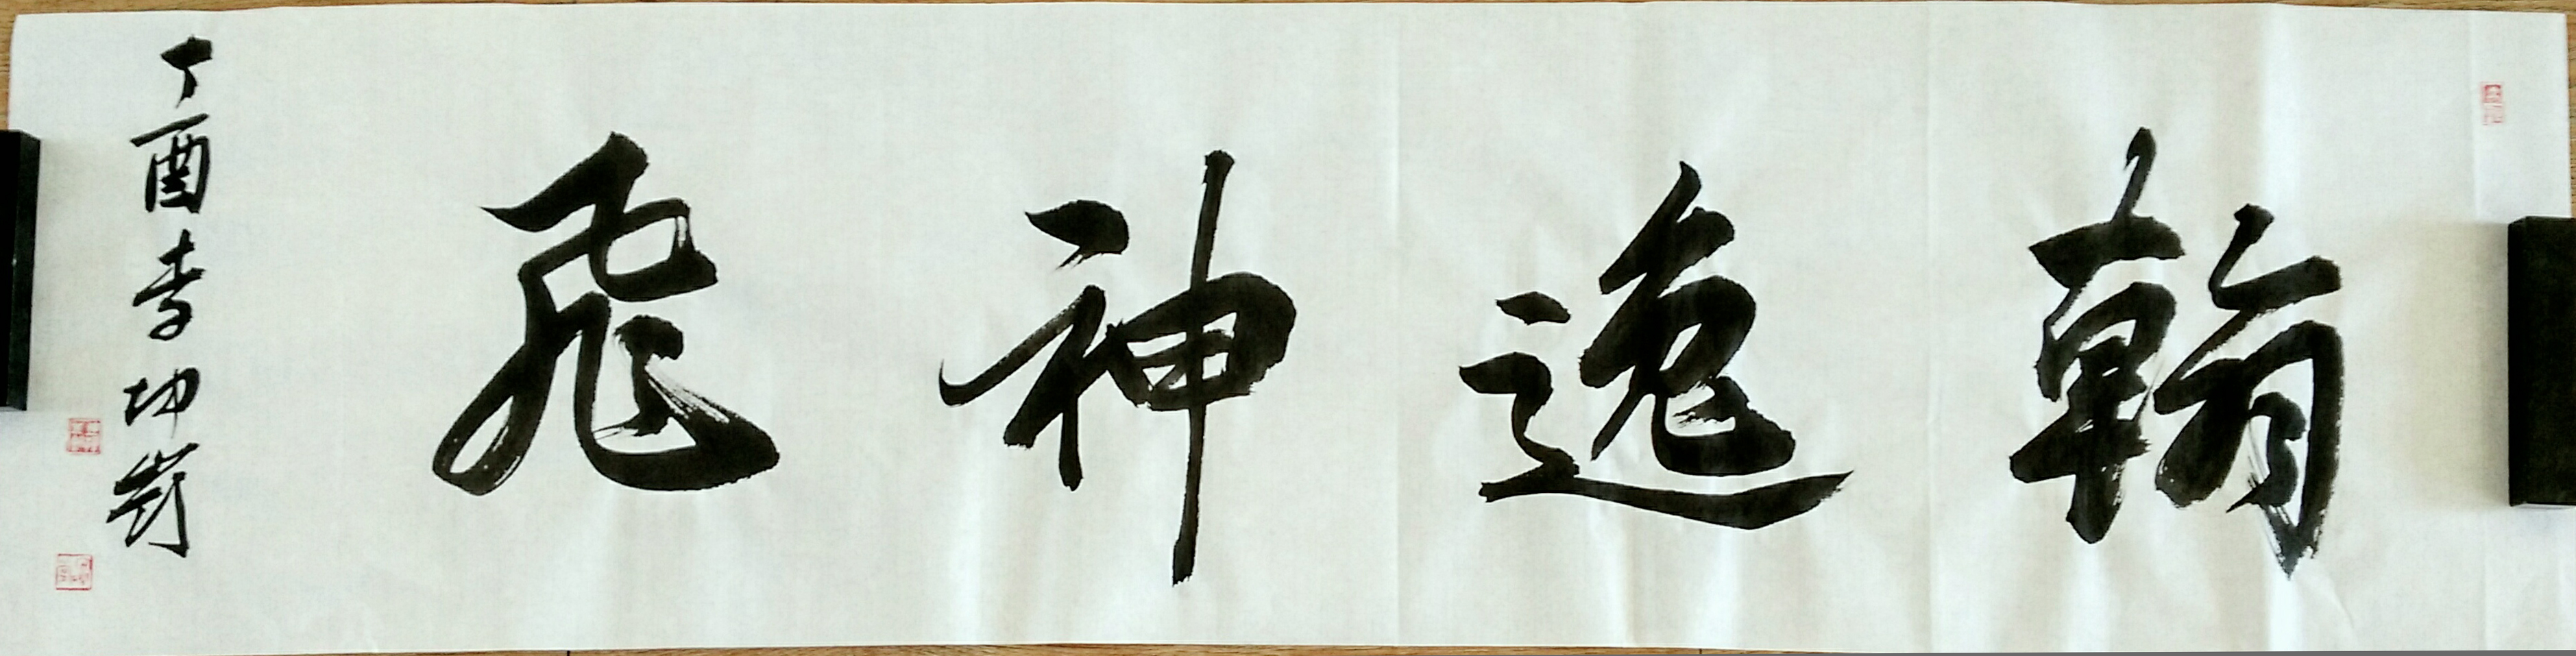 翰逸神飛
丁酉李坤